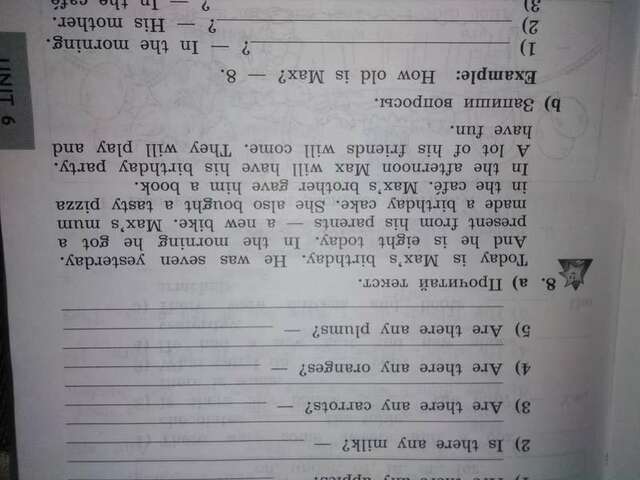 1) Are there any apples?
2) Is there any milk? —
3) Are there any carrots? —
4) Are there any oranges? —
5) Are there any plums? —
8. a) Прочитай текст.
Today is Max's birthday. He was seven yesterday.
And he is eight today. In the morning he got a
present from his parents — a new bike. Max's mum
made a birthday cake. She also bought a tasty pizza
in the café. Max's brother gave him a book.
In the afternoon Max will have his birthday party.
A lot of his friends will come. They will play and
have fun.
b) Запиши вопросы.
Example: How old is Max? — 8.
1) ? — In the morning.
2) ? — His mother.
3) ? — In the café.
UNIT 6